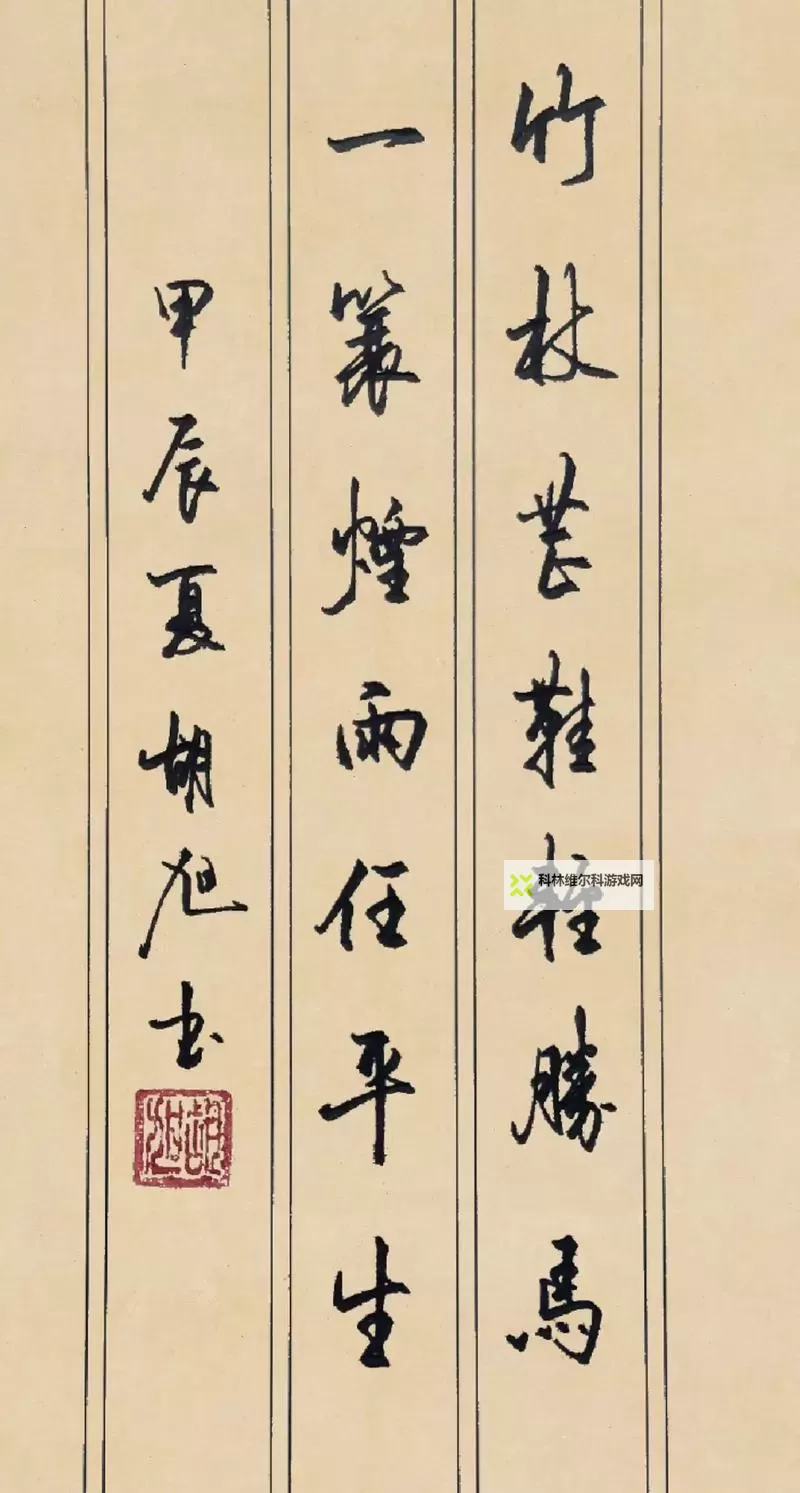 竹杖芒鞋輕勝馬
一蓑煙雨任平生
甲辰夏胡旭书
科林维尔科游戏网